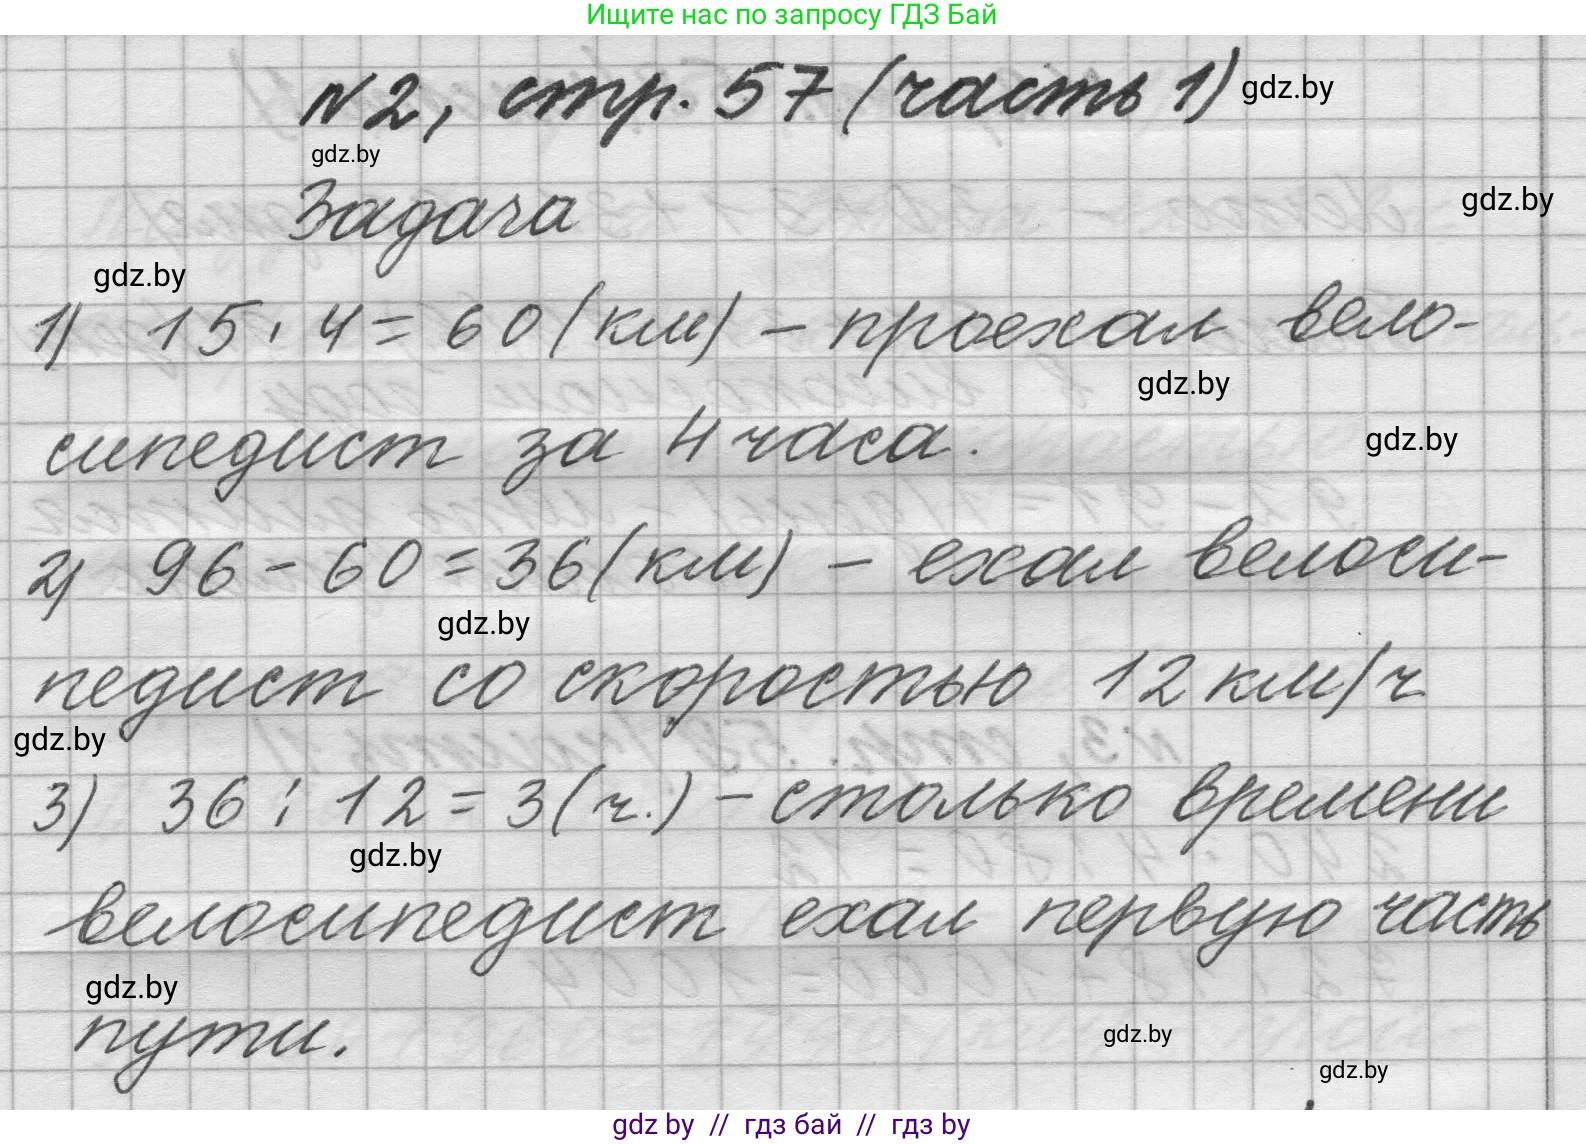 Ищите нас по запросу ГДЗ Бай
№2, стр. 57 (часть 1) gdz.by
gdz.by
Задача
gdz.by
gdz.by
1) 15 · 4 = 60 (км) – проехал вело-
gdz.by
сипедист за 4 часа.
gdz.by
2) 96 - 60 = 36 (км) – ехал велоси-
gdz.by
педист со скоростью 12 км/ч
gdz.by
3) 36 : 12 = 3 (ч.) – столько времени
gdz.by
велосипедист ехал первую часть
gdz.by
пути.
gdz.by
gdz.by
gdz by // гдз бай // гдз by